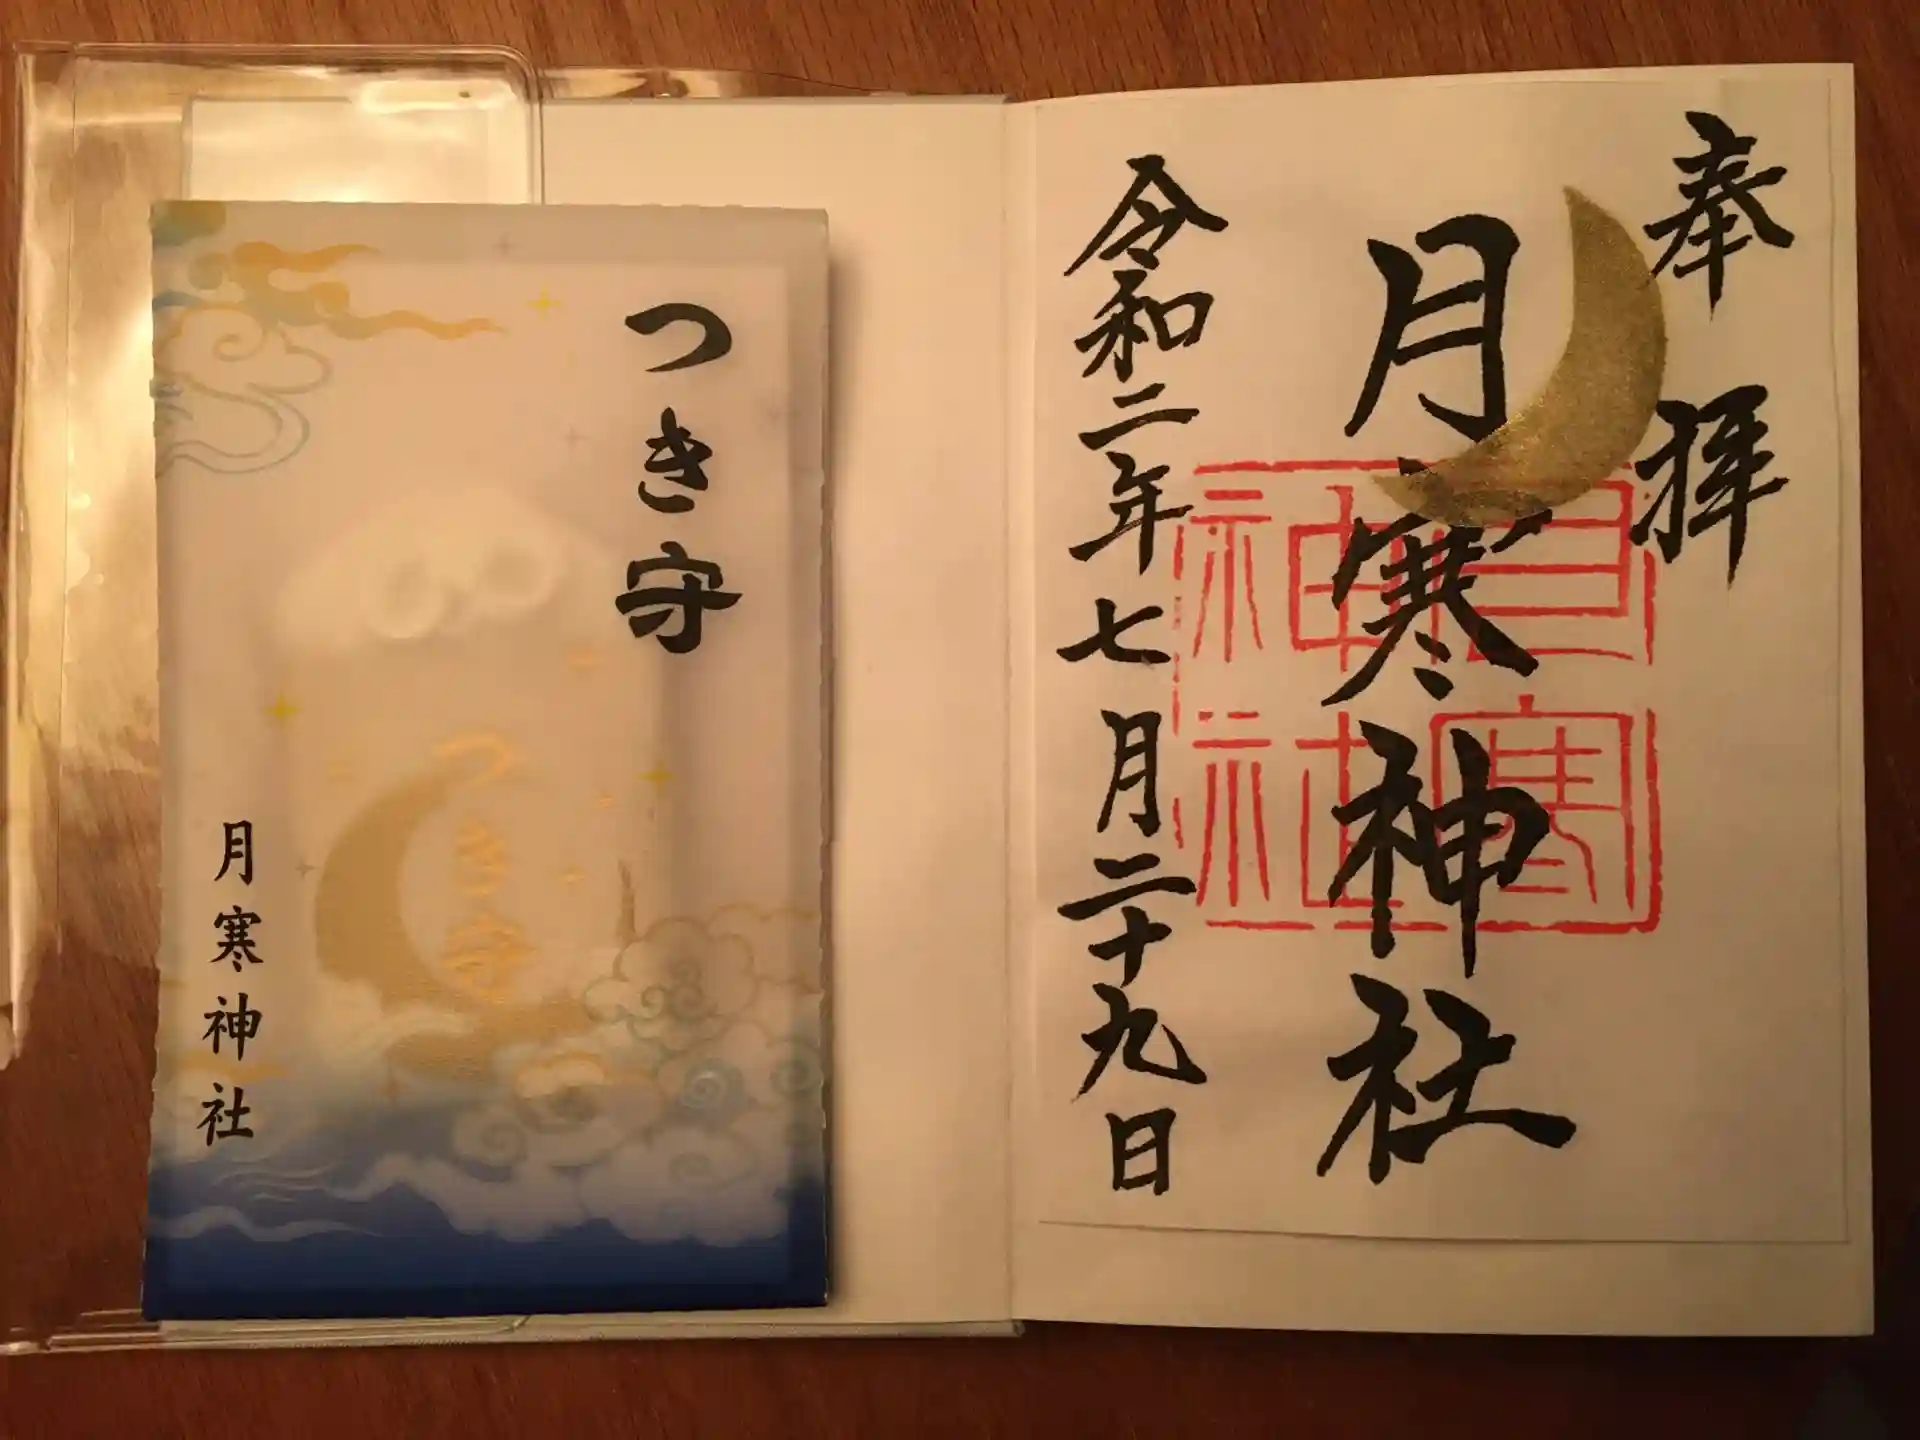 つき守
つき守
月寒神社
奉拝
月寒神社
月寒
神社
令和二年七月二十九日